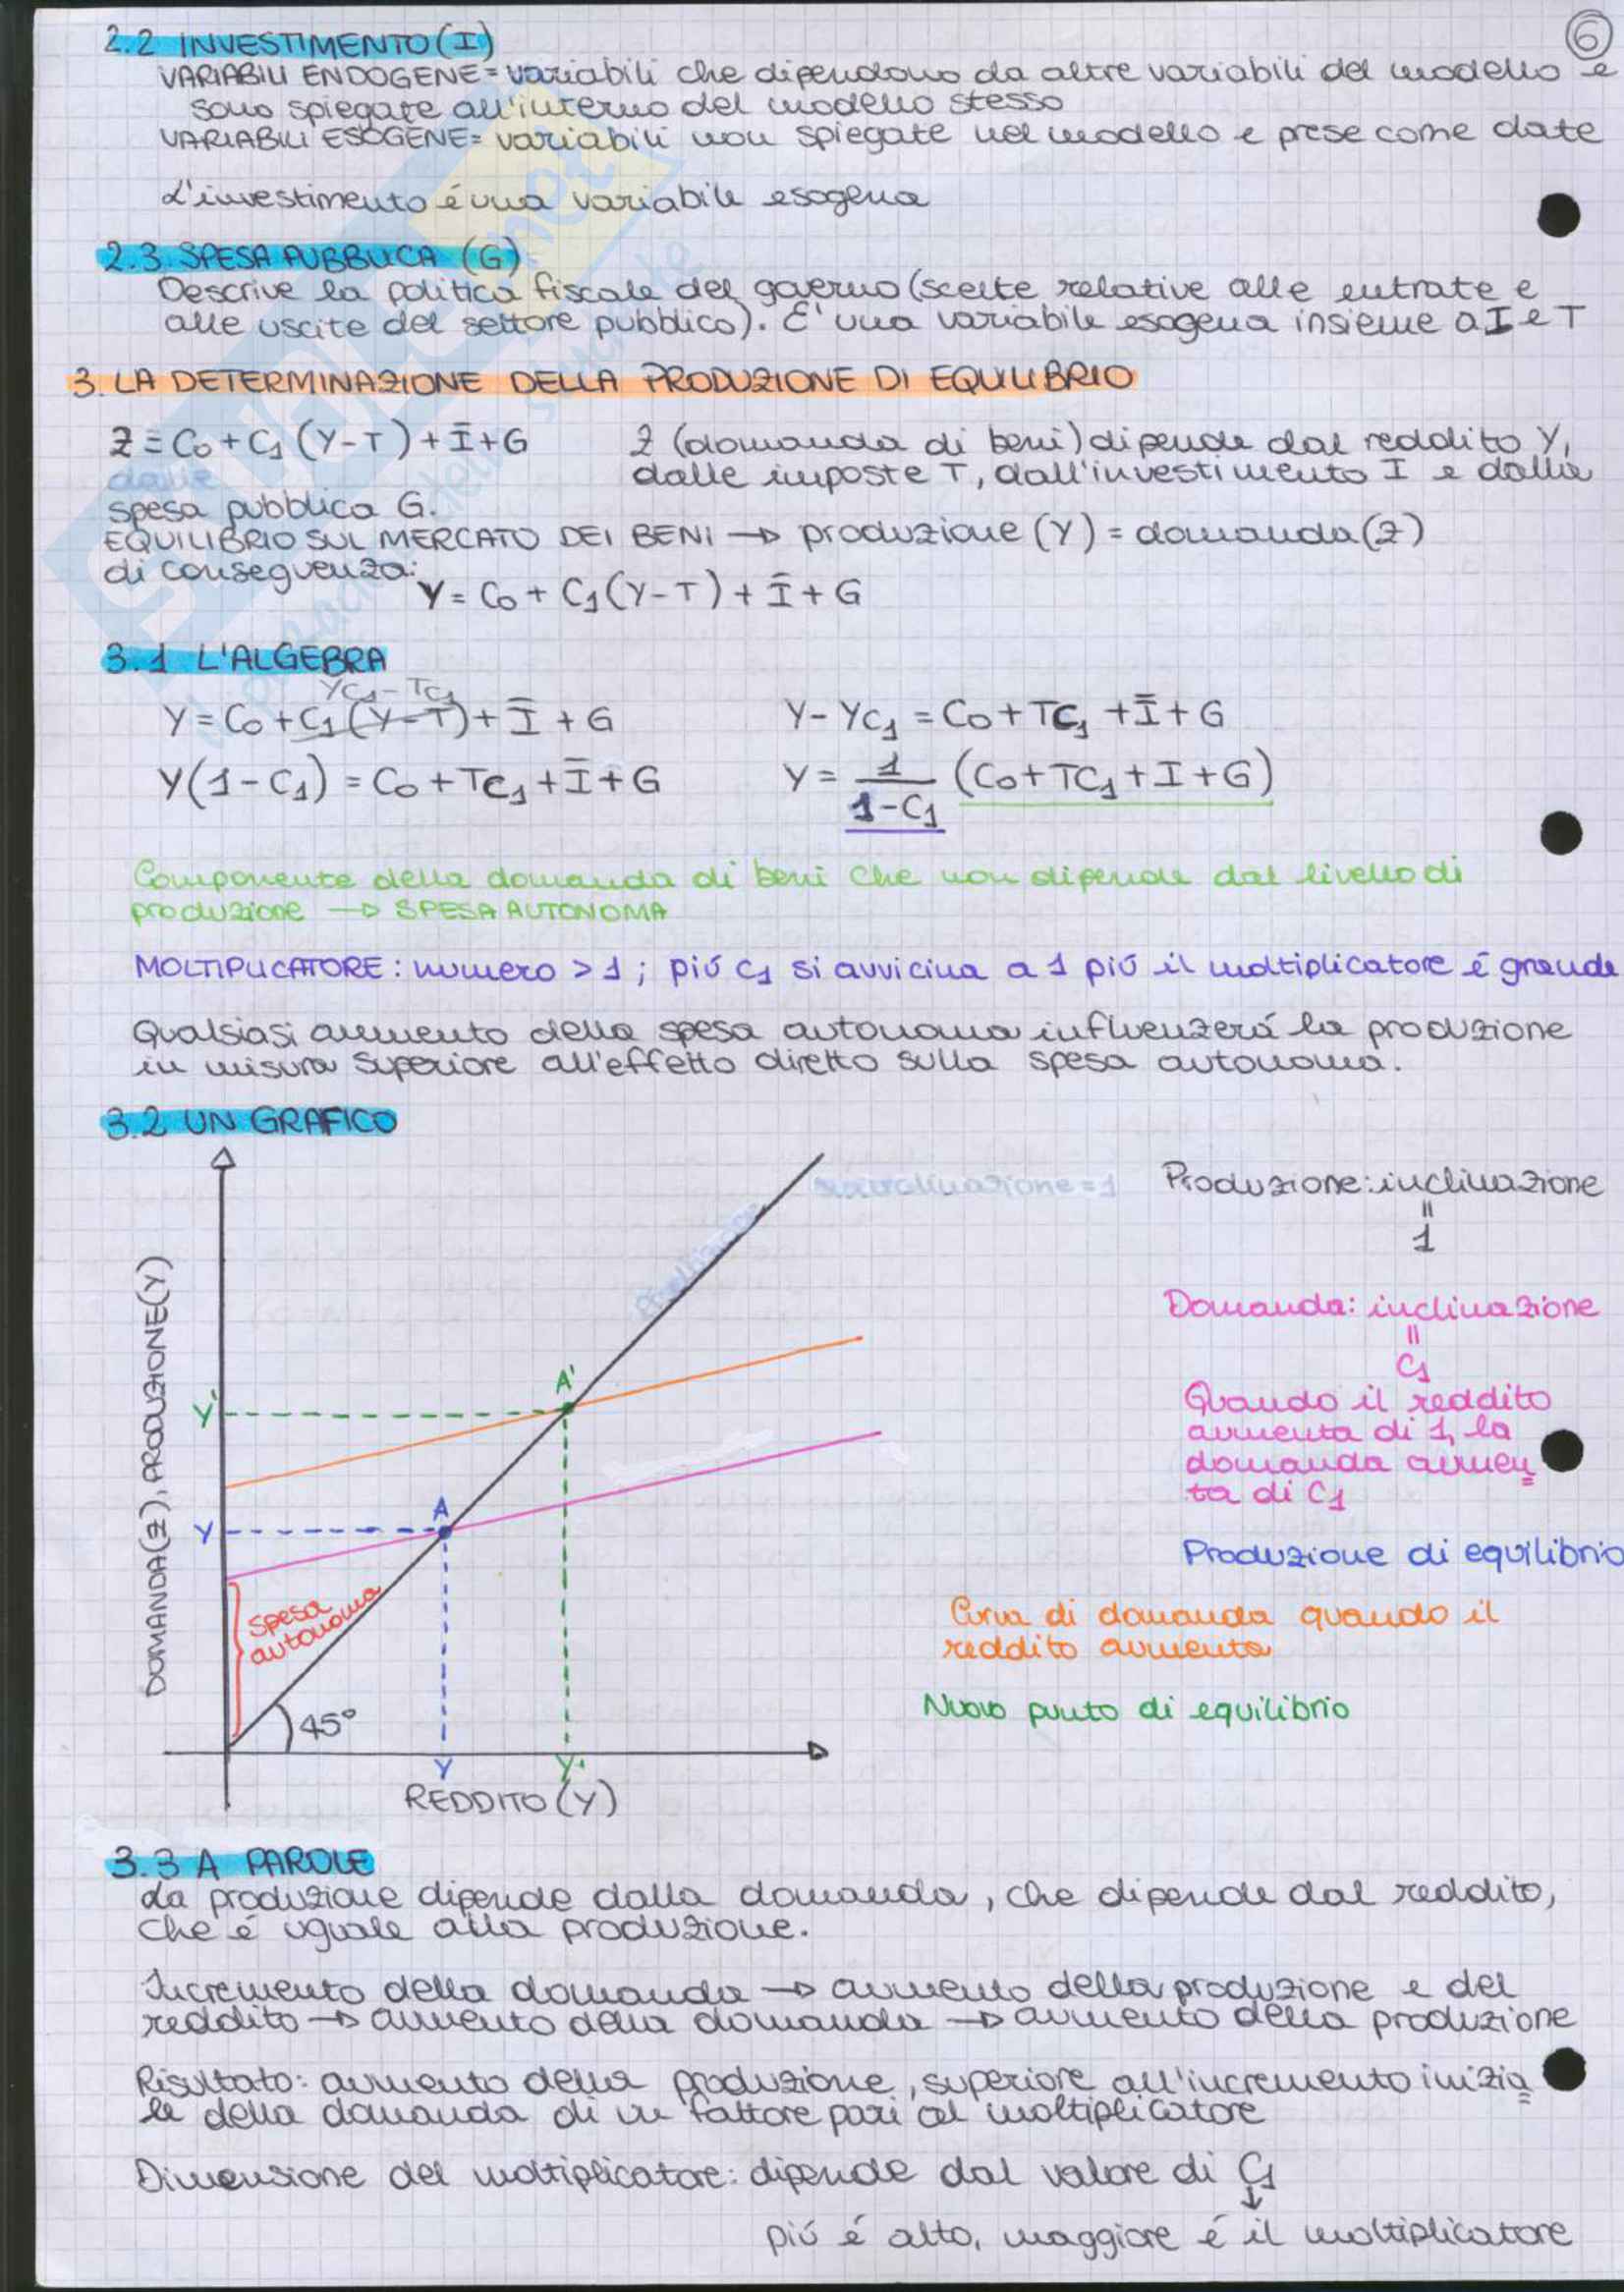 6
2.2 INVESTIMENTO (I)
VARIABILI ENDOGENE = variabili che dipendono da altre variabili del modello e
sono spiegate all'interno del modello stesso
VARIABILI ESOGENE = variabili non spiegate nel modello e prese come date
L'investimento é una variabile esogena
2.3 SPESA PUBBLICA (G)
Descrive la politica fiscale del governo (scelte relative alle entrate e
alle uscite del settore pubblico). E' una variabile esogena insieme a I e T
3. LA DETERMINAZIONE DELLA PRODUZIONE DI EQUILIBRIO
Z = C0 + C1 (Y-T) + Ī + G
Z (domanda di beni) dipende dal reddito Y,
dalle imposte T, dall'investimento I e dalla
spesa pubblica G.
EQUILIBRIO SUL MERCATO DEI BENI → produzione (Y) = domanda (Z)
di conseguenza:
Y = C0 + C1 (Y-T) + Ī + G
3.1 L'ALGEBRA
YC1 - TC1
Y = C0 + C1 (Y-T) + Ī + G
Y - YC1 = C0 + TC1 + Ī + G
Y(1-C1) = C0 + TC1 + Ī + G
Y = 1/(1-C1) (C0 + TC1 + I + G)
Componente della domanda di beni che non dipende dal livello di
produzione → SPESA AUTONOMA
MOLTIPLICATORE: numero > 1 ; piú C1 si avvicina a 1 piú il moltiplicatore é grande
Qualsiasi aumento della spesa autonoma influenzerá la produzione
in misura superiore all'effetto diretto sulla spesa autonoma.
3.2 UN GRAFICO
DOMANDA (Z), PRODUZIONE (Y)
Produzione: inclinazione
=
1
Domanda: inclinazione
=
C1
Quando il reddito
aumenta di 1, la
domanda aumen
ta di C1
A'
Y'
A
Y
Produzione di equilibrio
Spesa
autonoma
Curva di domanda quando il
reddito aumenta
Nuovo punto di equilibrio
45°
Y
Y'
REDDITO (Y)
3.3 A PAROLE
La produzione dipende dalla domanda, che dipende dal reddito,
che é uguale alla produzione.
Incremento della domanda → aumento della produzione e del
reddito → aumento della domanda → aumento della produzione
Risultato: aumento della produzione, superiore all'incremento inizia
le della domanda di un fattore pari al moltiplicatore
Dimensione del moltiplicatore: dipende dal valore di C1
↓
piú é alto, maggiore é il moltiplicatore